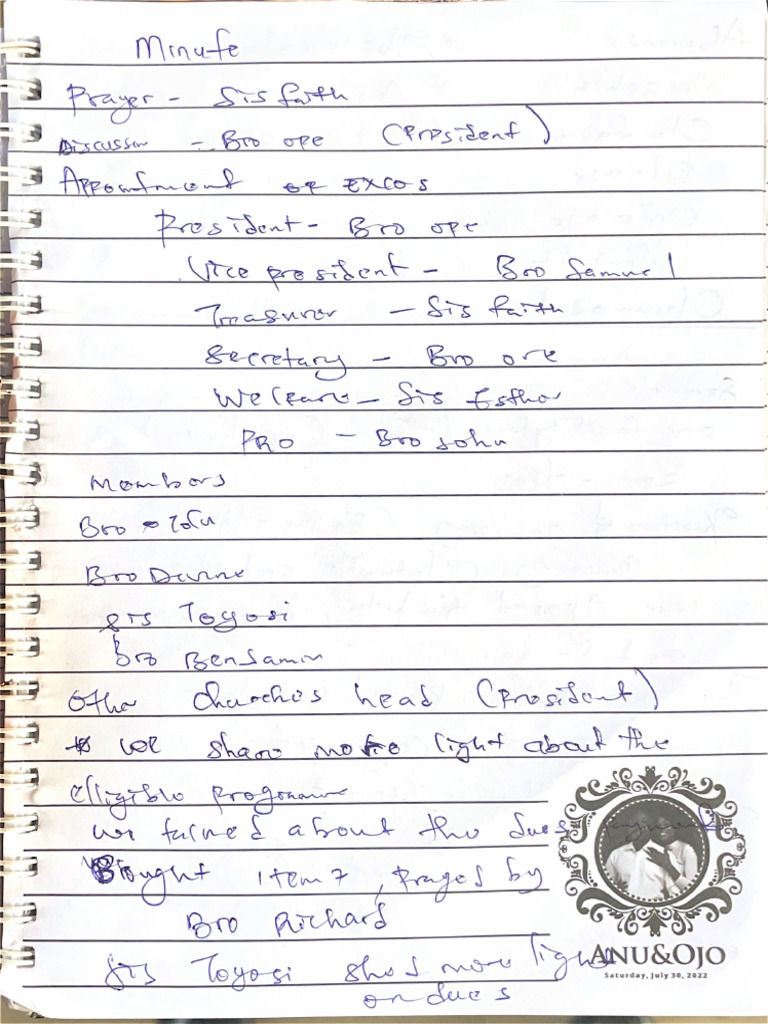 Minute
Prayer - Sis faith
Discussion - Bro ope (President)
Appointment of Excos
President - Bro ope
Vice president - Bro Samuel
Treasurer - Sis faith
Secretary - Bro ore
Welfare - Sis Esther
PRO - Bro John
Members
Bro Tolu
Bro Devine
Sis Toyosi
bro Benjamin
Other churches head (President)
we share more light about the
elligible programme
we talked about the dues payment
Bought item 7, Prayed by
Bro Richard
Sis Toyosi shed more light
on dues
ANU&OJO
Saturday, July 30, 2022